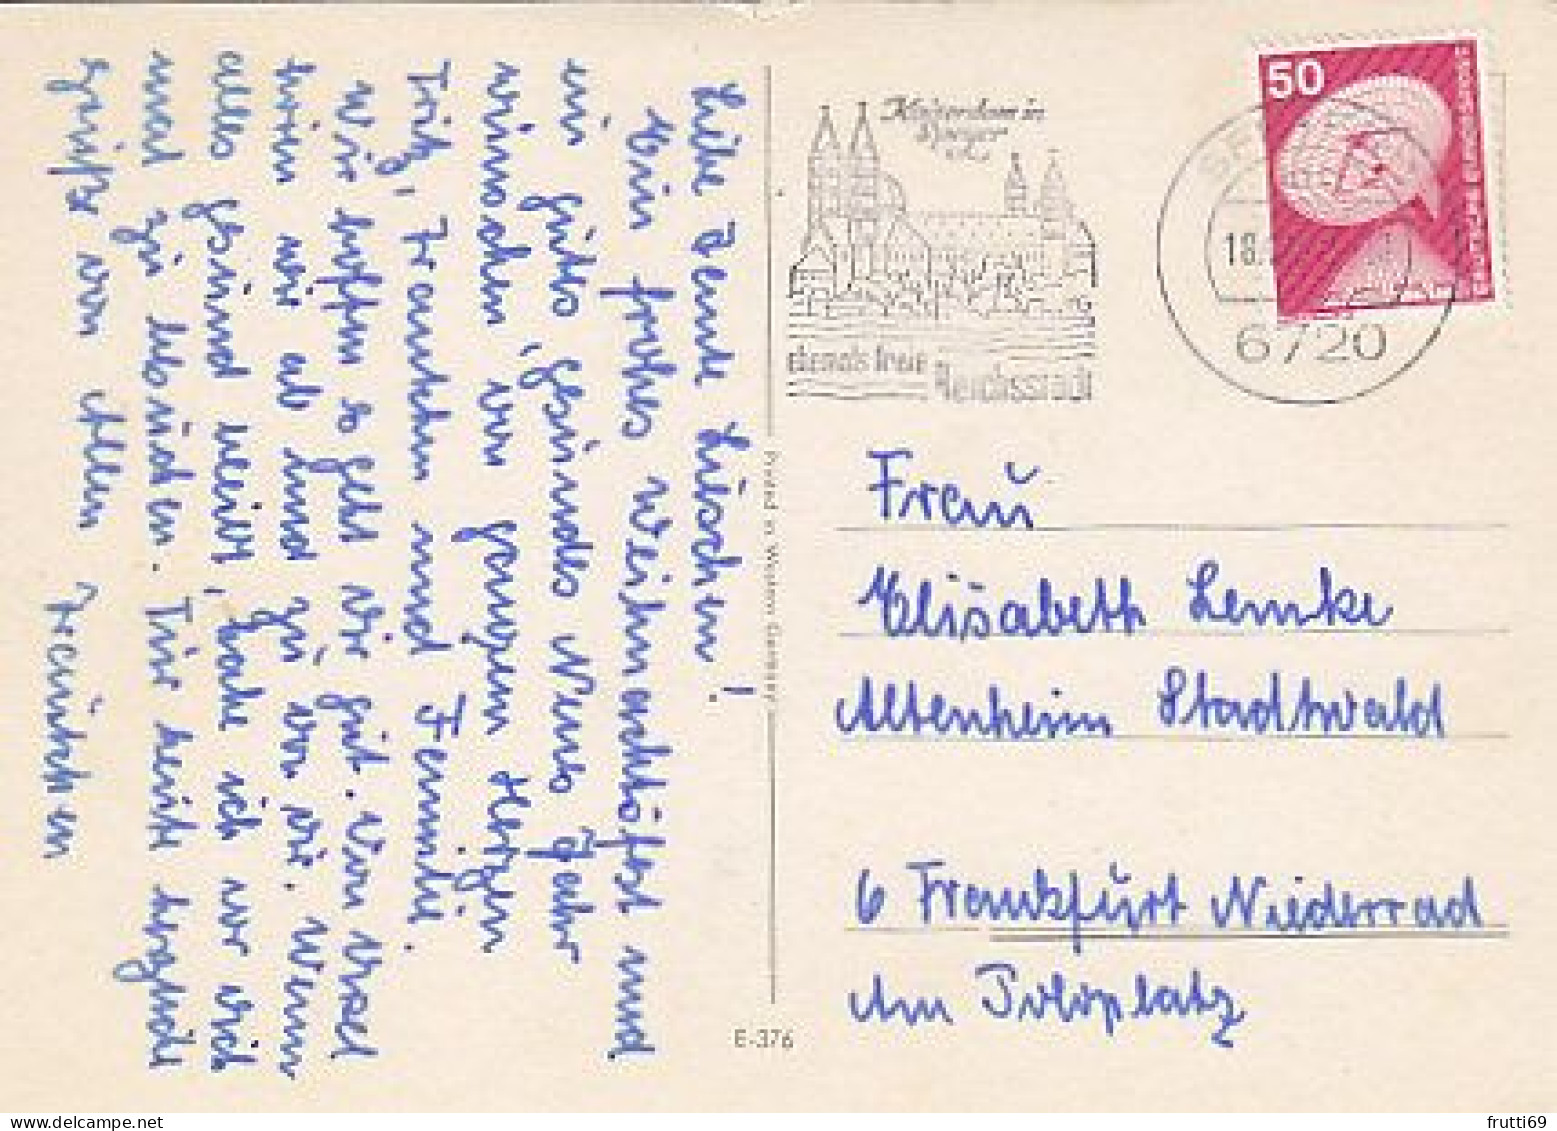 Liebe Tante Lieschen!
Ein frohes Weihnachtsfest und
ein gutes, gesundes Neues Jahr
wünschen von ganzem Herzen
Fritz, Frauchen und Familie.
Wir hoffen es geht Dir gut. Von
wir ab und zu von Dir. Wenn
alles gesund bleibt, habe ich vor Dich
mal zu besuchen. Für heute herzlichst
Grüße von Allen
Kaiserdom in
Speyer
ehemals freie
Reichsstadt
50
DEUTSCHE BUNDESPOST
18.
6720
Frau
Elisabeth Lemke
Altenheim Stadtwald
6 Frankfurt Niederrad
Am Poloplatz
Printed in Western Germany
E-376
frutti69